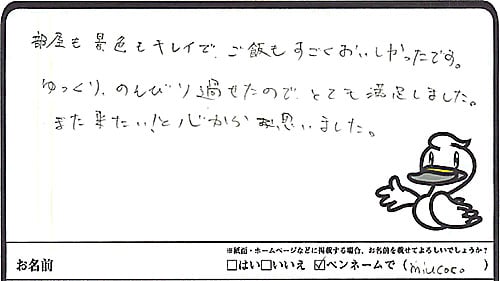 部屋も景色もキレイで、ご飯もすごくおいしかったです。
ゆっくり、のんびり過せたので、とても満足しました。
また来たい!と心から思いました。
※紙面・ホームページなどに掲載する場合、お名前を載せてよろしいでしょうか?
お名前 □はい□いいえ ☑ペンネームで(miucoco)